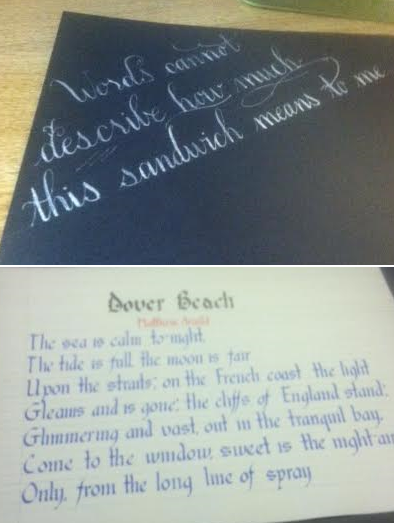 Words cannot
describe how much
this sandwich means to me
Dover Beach
Matthew Arnold
The sea is calm to-night
The tide is full, the moon is fair
Upon the straits; on the French coast the light
Gleams and is gone; the cliffs of England stand;
Glimmering and vast, out in the tranquil bay.
Come to the window, sweet is the night-air
Only, from the long line of spray